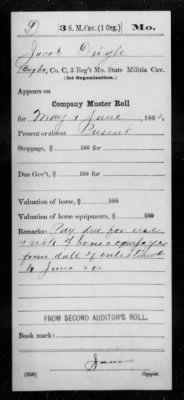 D | 3 S. M. Cav. (1 Org.) | Mo.
Jacob Deigle
Co. C, 3 Reg't Mo. State Militia Cav.
(1st Organization.)
Appears on
Company Muster Roll
for May & June, 186
Present or absent Present
Stoppage, $ 100 for
Due Gov't, $ 100 for
Valuation of horse, $ 100
Valuation of horse equipments, $ 100
Remarks: Pay due for use
& risk of horse & equipage
from date of enlistment
to June 20.
FROM SECOND AUDITOR'S ROLL.
Book mark:
(359)
Copyist.